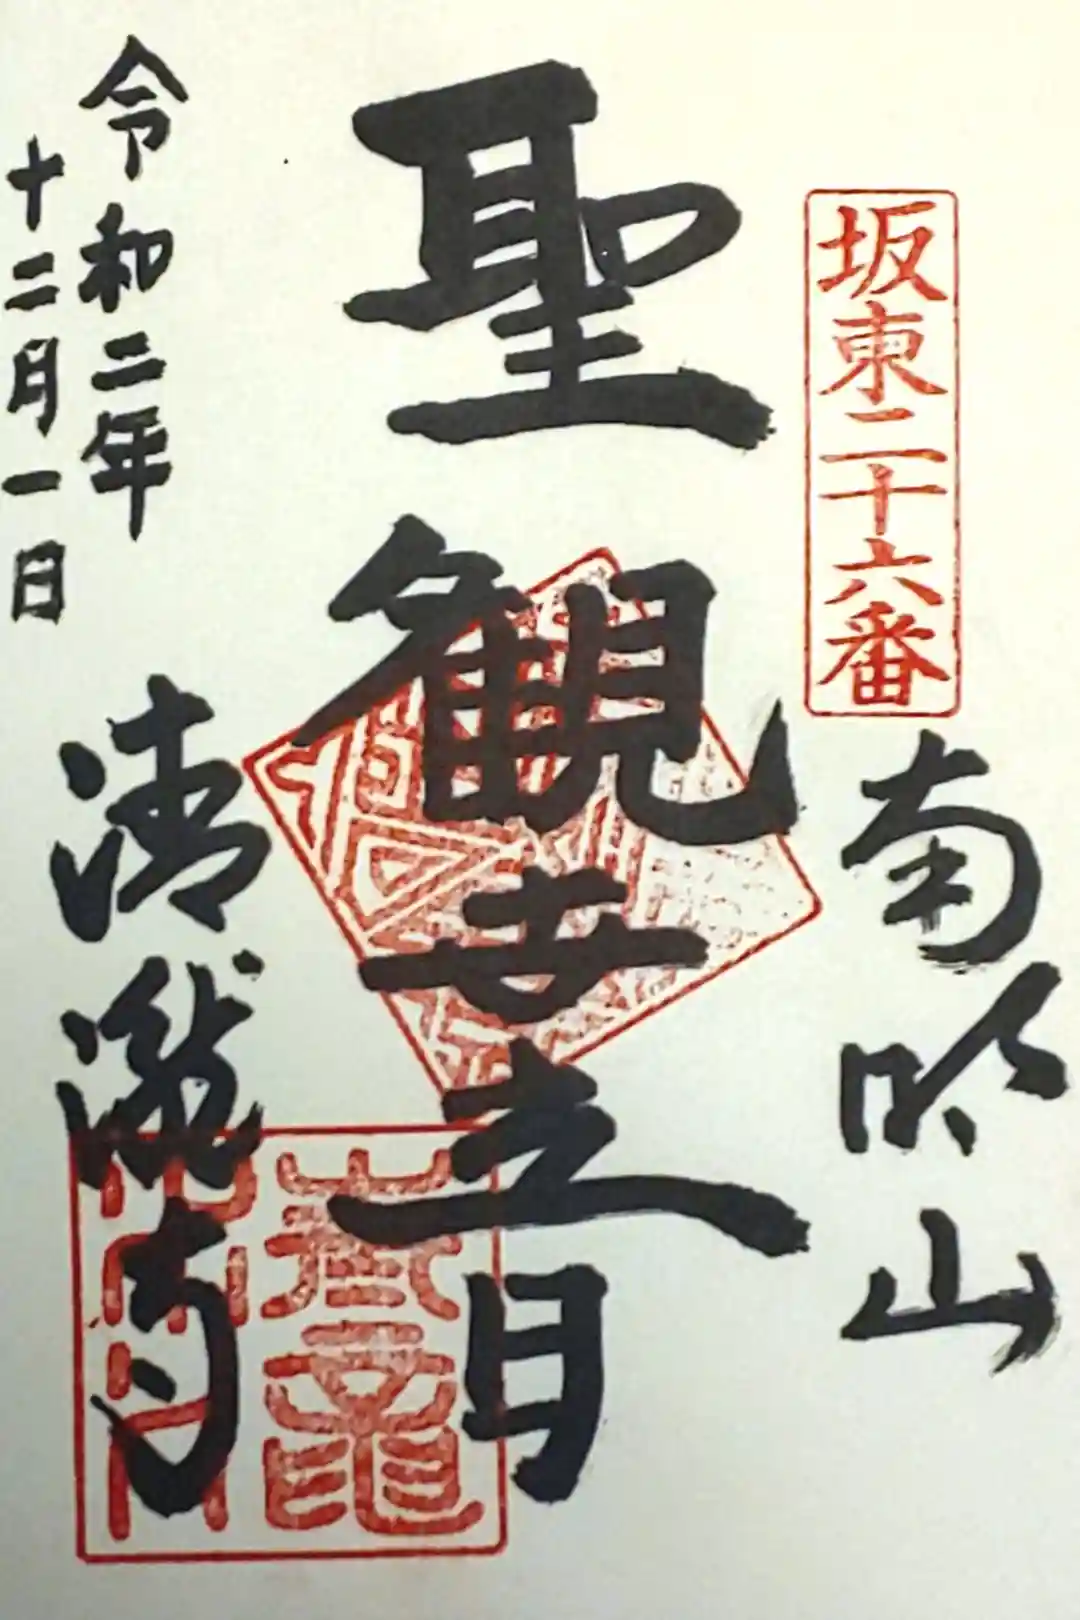 坂東二十六番
南明山
聖観世音
清瀧寺
令和二年
十二月一日